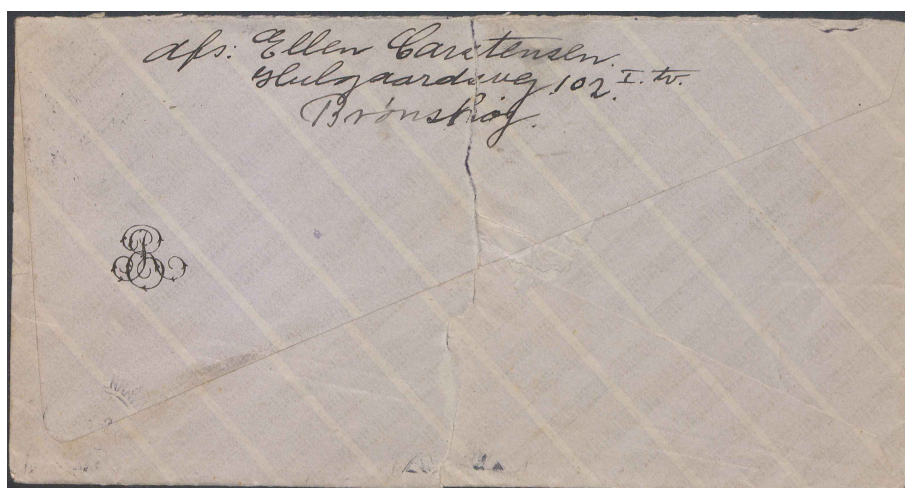 Afs: Ellen Carstensen.
Hulgaardsveg 102. I. tv.
Brønshøj.